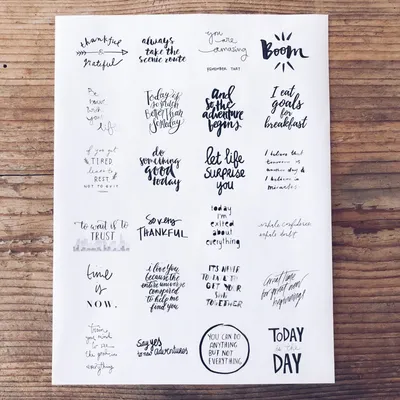 thankful
grateful
always
take the
scenic route
you
are
amazing
REMEMBER THAT
BOOM
Be
brave
with
your
life
Today is
so much
Better than
Someday
And
so the
adventure
begins
I eat
goals
for
breakfast
if you get
TIRED
learn to
REST
NOT TO QUIT
do
something
good
today
let life
SURPRISE
YOU
I believe that
tomorrow is
another day &
I believe in
miracles
to wait is to
TRUST
So very
THANKFUL
today
i'm
excited
about
everything
inhale confidence
exhale doubt
time
is
NOW.
i love you because
the
entire universe
conspired
to help me
find you
IT'S NEVER
TO LATE TO
GET YOUR
TOGETHER
Great time
for great new
beginnings!
your mind
to see
the
in
everything
Say yes
to new adventures
YOU CAN DO
ANYTHING
BUT NOT
EVERYTHING
TODAY
is the
DAY